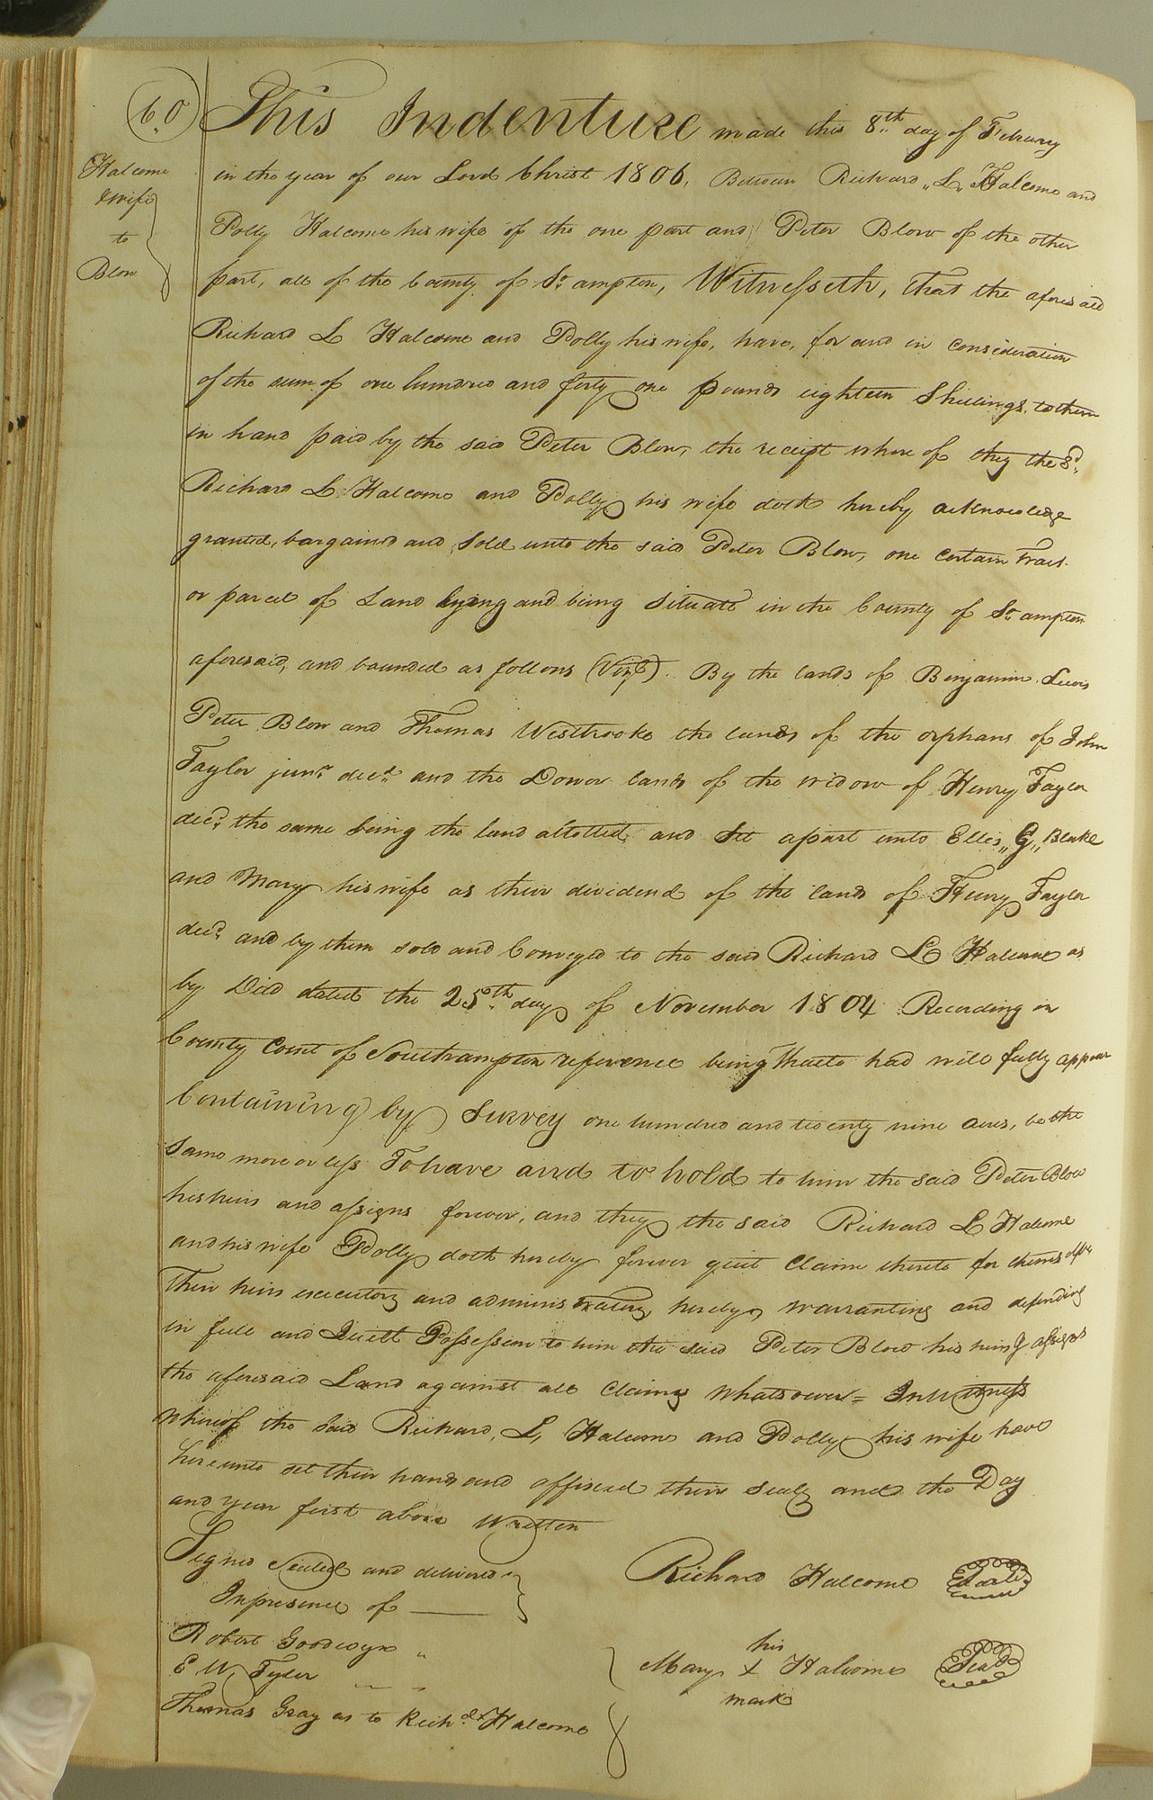 60
Halcome
& wife
to
Blow
This Indenture made this 8th day of Febuary
in the year of our Lord Christ 1806, Between Richard „L„ Halcome and
Polly Halcome his wife of the one part and Peter Blow of the other
part, all of the County of So ampton, Witnesseth, That the aforesaid
Richard L Halcome and Polly his wife, have, for and in consideration
of the sum of one hundred and forty one pounds eighteen Shillings, to them
in hand paid by the said Peter Blow, the receipt where of they the Sd
Richard L Halcome and Polly his wife doth hereby acknowledge
granted, bargained and sold unto the said Peter Blow, one certain Tract
or parcel of Land lying and being situate in the County of So ampton
aforesaid, and bounded as follows (Vizt). By the lands of Benjamin Lewis
Peter Blow and Thomas Westbrooke the lands of the orphans of John
Taylor junr decd and the Dower lands of the widow of Henry Taylor
decd the same being the land allotted and Set apart unto Ellis „G„ Blake
and Mary his wife as their dividend of the lands of Henry Taylor
decd and by them sold and Conveyed to the said Richard L Halcome as
by Deed dated the 25th day of November 1804 Recording in
County Court of Southampton reference being thereto had will fully appear
Containing by Survey one hundred and twenty nine acres, be the
same more or less To have and to hold to him the said Peter Blow
his heirs and assigns forever, and they the said Richard L Halcome
and his wife Polly doth hereby forever quit Claim thereto for themselves
Their heirs executors and administrators, hereby warranting and defending
in full and Quiett Possession to him the said Peter Blow his heirs & assigns
the aforesaid Land against all Claims whatsoever = In Witness
whereof the said Richard, L, Halcome and Polly his wife have
hereunto set their hands and affixed their seals and the Day
and year first above Written
Signed Sealed and delivered
In presence of
Robert Goodwyn „
E W, Tyler
Thomas Gray as to Richd L Halcome
Richard Halcome Seal
his
Mary X Halcome Seal
mark